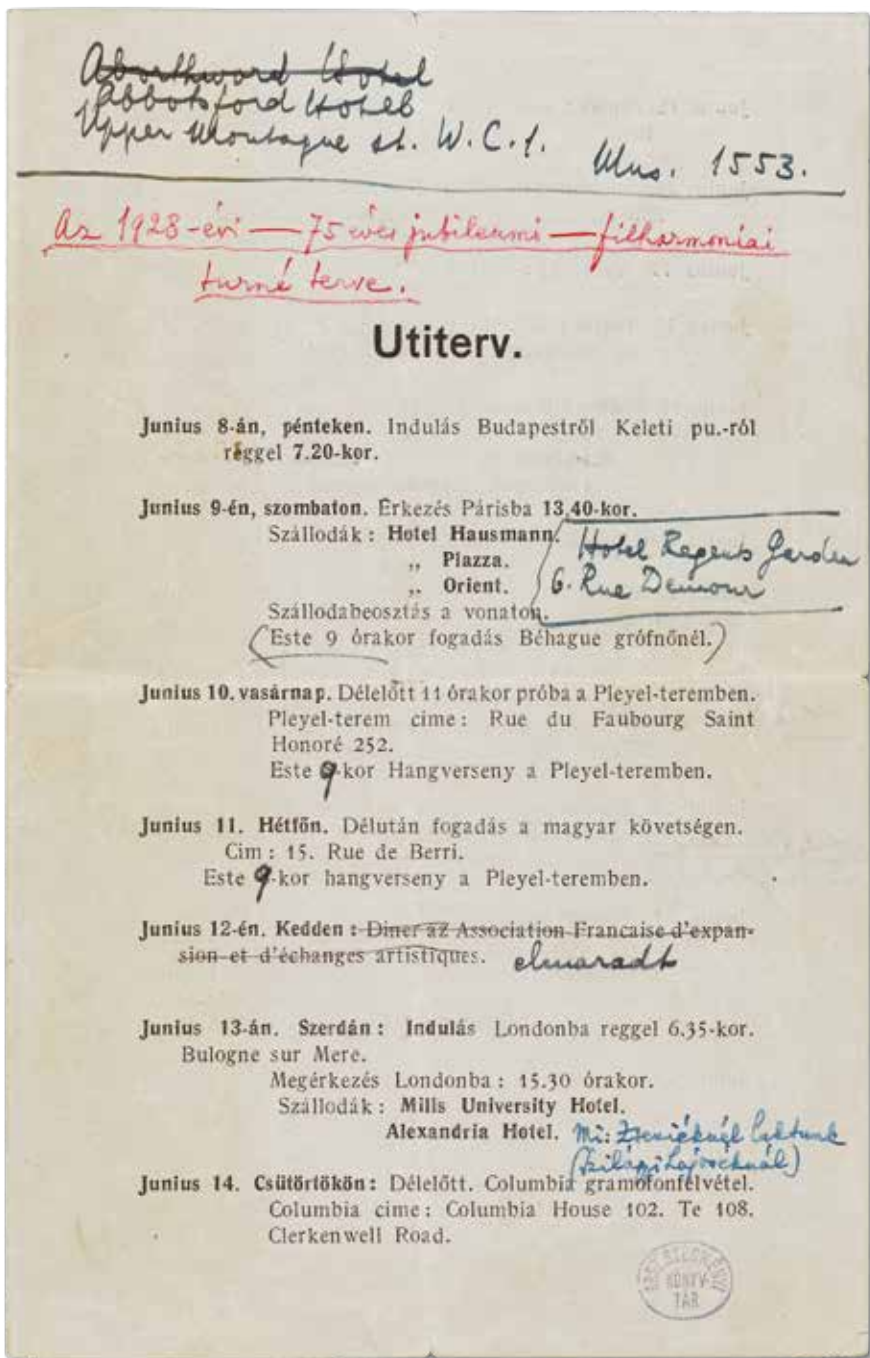 Abbotsford Hotel
Upper Montague st. W.C.1.
Mus. 1553.
Az 1928-évi — 75 éves jubileumi — filharmoniai
turné terve.
Utiterv.
Junius 8-án, pénteken. Indulás Budapestről Keleti pu.-ról
reggel 7.20-kor.
Junius 9-én, szombaton. Érkezés Párisba 13.40-kor.
Szállodák : Hotel Hausmann.
„ Piazza.
„ Orient.
Hotel Regents Garden
6. Rue Demour
Szállodabeosztás a vonaton.
(Este 9 órakor fogadás Béhague grófnőnél.)
Junius 10. vasárnap. Délelőtt 11 órakor próba a Pleyel-teremben.
Pleyel-terem cime : Rue du Faubourg Saint
Honoré 252.
Este 9-kor Hangverseny a Pleyel-teremben.
Junius 11. Hétfőn. Délután fogadás a magyar követségen.
Cim : 15. Rue de Berri.
Este 9-kor hangverseny a Pleyel-teremben.
Junius 12-én. Kedden : Diner az Association Francaise d'expan-
sion et d'échanges artistiques. elmaradt
Junius 13-án. Szerdán : Indulás Londonba reggel 6.35-kor.
Bulogne sur Mere.
Megérkezés Londonba : 15.30 órakor.
Szállodák : Mills University Hotel.
Alexandria Hotel. Mi: Zseniéknél laktunk
(Szilágyi Lajoséknál)
Junius 14. Csütörtökön : Délelőtt. Columbia gramofonfelvétel.
Columbia cime : Columbia House 102. Te 108.
Clerkenwell Road.
KÖNYV-
TÁR